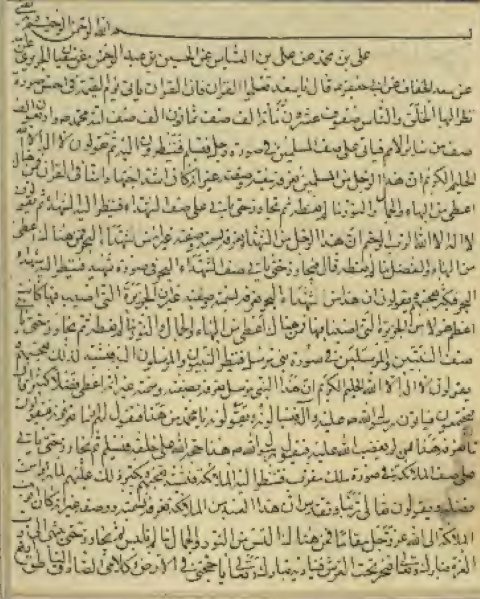 بسم الله الرحمن الرحيم
علي بن محمد عن علي بن العباس عن الحسين بن عبد الرحمن عن سفيان الحريري عن
عن سعد الخفاف عن ابي جعفر قال يا سعد تعلموا القران فان القران ياتي يوم القيمة في احسن صورة
نظر اليها الخلق والناس صفوف عشرون ومائة الف صف ثمانون الف صف امة محمد واربعون الف
صف من سائر الامم فياتي على صف المسلمين في صورة رجل فيسلم فينظرون اليه ثم يقولون لا اله الا الله
الحليم الكريم ان هذا الرجل من المسلمين نعرفه بنعته وصفته غير انه كان اشد اجتهادا منا في القران فمن هناك
اعطي من البهاء والجمال والنور ما لم نعطه ثم يجاوز حتى ياتي على صف الشهداء فينظر اليه الشهداء ثم يقولون
لا اله الا الله الرب الرحيم ان هذا الرجل من الشهداء نعرفه بسمته وصفته غير انه من شهداء البحر فمن هناك اعطي
من البهاء والفضل ما لم نعطه قال فيجاوز حتى ياتي صف شهداء البحر في صورة شهيد فينظر اليه شهداء
البحر فيكثر تعجبهم ويقولون ان هذا من شهداء البحر نعرفه بسمته وصفته غير ان الجزيرة التي اصيب فيها كانت
اعظم هولا من الجزيرة التي اصبنا فيها فمن هناك اعطي من البهاء والجمال والنور ما لم نعطه ثم يجاوز حتى ياتي
صف النبيين والمرسلين في صورة نبي مرسل فينظر النبيون والمرسلون اليه فيشتد لذلك تعجبهم
ويقولون لا اله الا الله الحليم الكريم ان هذا النبي مرسل نعرفه بصفته وسمته غير انه اعطي فضلا كثيرا قال
فيجتمعون فياتون رسول الله صلى الله عليه واله فيسالونه ويقولون يا محمد من هذا فيقول لهم او ما تعرفونه فيقولون
ما نعرفه هذا ممن لم يغضب الله عليه فيقول رسول الله هذا حجة الله على خلقه فيسلم ثم يجاوز حتى ياتي
على صف الملائكة في صورة ملك مقرب فتنظر اليه الملائكة فيشتد تعجبهم ويكبر ذلك عليهم لما راوا من
فضله ويقولون تعالى ربنا وتقدس ان هذا العبد من الملائكة نعرفه بسمته ووصفه غير انه كان اقرب
الملائكة الى الله عز وجل مقاما فمن هناك البس من النور والجمال ما لم نلبس ثم يجاوز حتى ينتهي الى رب
العزة تبارك وتعالى فيخر تحت العرش فيناديه تبارك وتعالى يا حجتي في الارض وكلامي الصادق الناطق ارفع